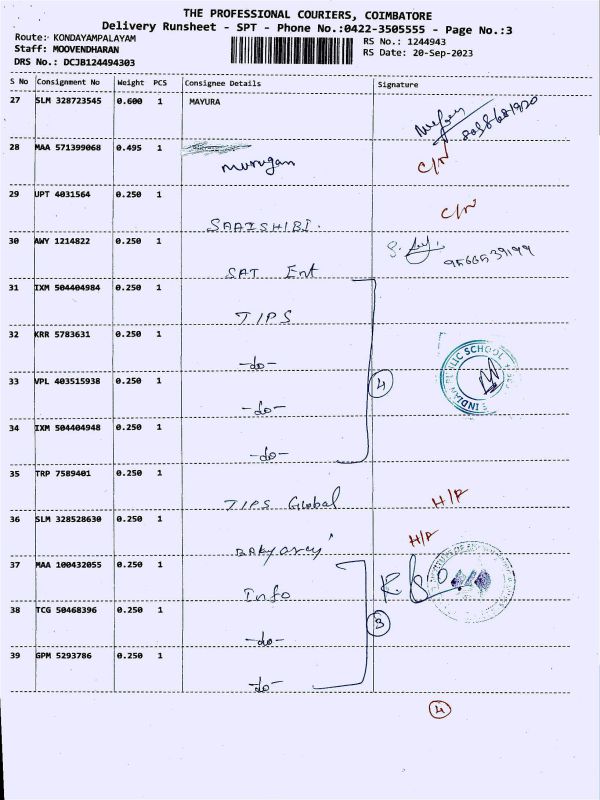 THE PROFESSIONAL COURIERS, COIMBATORE
Delivery Runsheet - SPT - Phone No.:0422-3505555 - Page No.:3
Route: KONDAYAMPALAYAM
Staff: MOOVENDHARAN
DRS No.: DCJB124494303
RS No.: 1244943
RS Date: 20-Sep-2023
S No Consignment No Weight PCS Consignee Details Signature
27 SLM 328723545 0.600 1 MAYURA
28 MAA 571399068 0.495 1 murugan C/N
29 UPT 4031564 0.250 1 SAAISHIBI. C/N
30 AWY 1214822 0.250 1 SAT Ent 9566539199
31 IXM 504404984 0.250 1 TIPS
32 KRR 5783631 0.250 1 -do-
33 VPL 403515938 0.250 1 -do- 4 INDIAN PUBLIC SCHOOL
34 IXM 504404948 0.250 1 -do-
35 TRP 7589401 0.250 1 TIPS Global H/P
36 SLM 328528630 0.250 1 H/P
37 MAA 100432055 0.250 1 Info
38 TCG 50468396 0.250 1 -do- 3
39 GPM 5293786 0.250 1 -do-
4